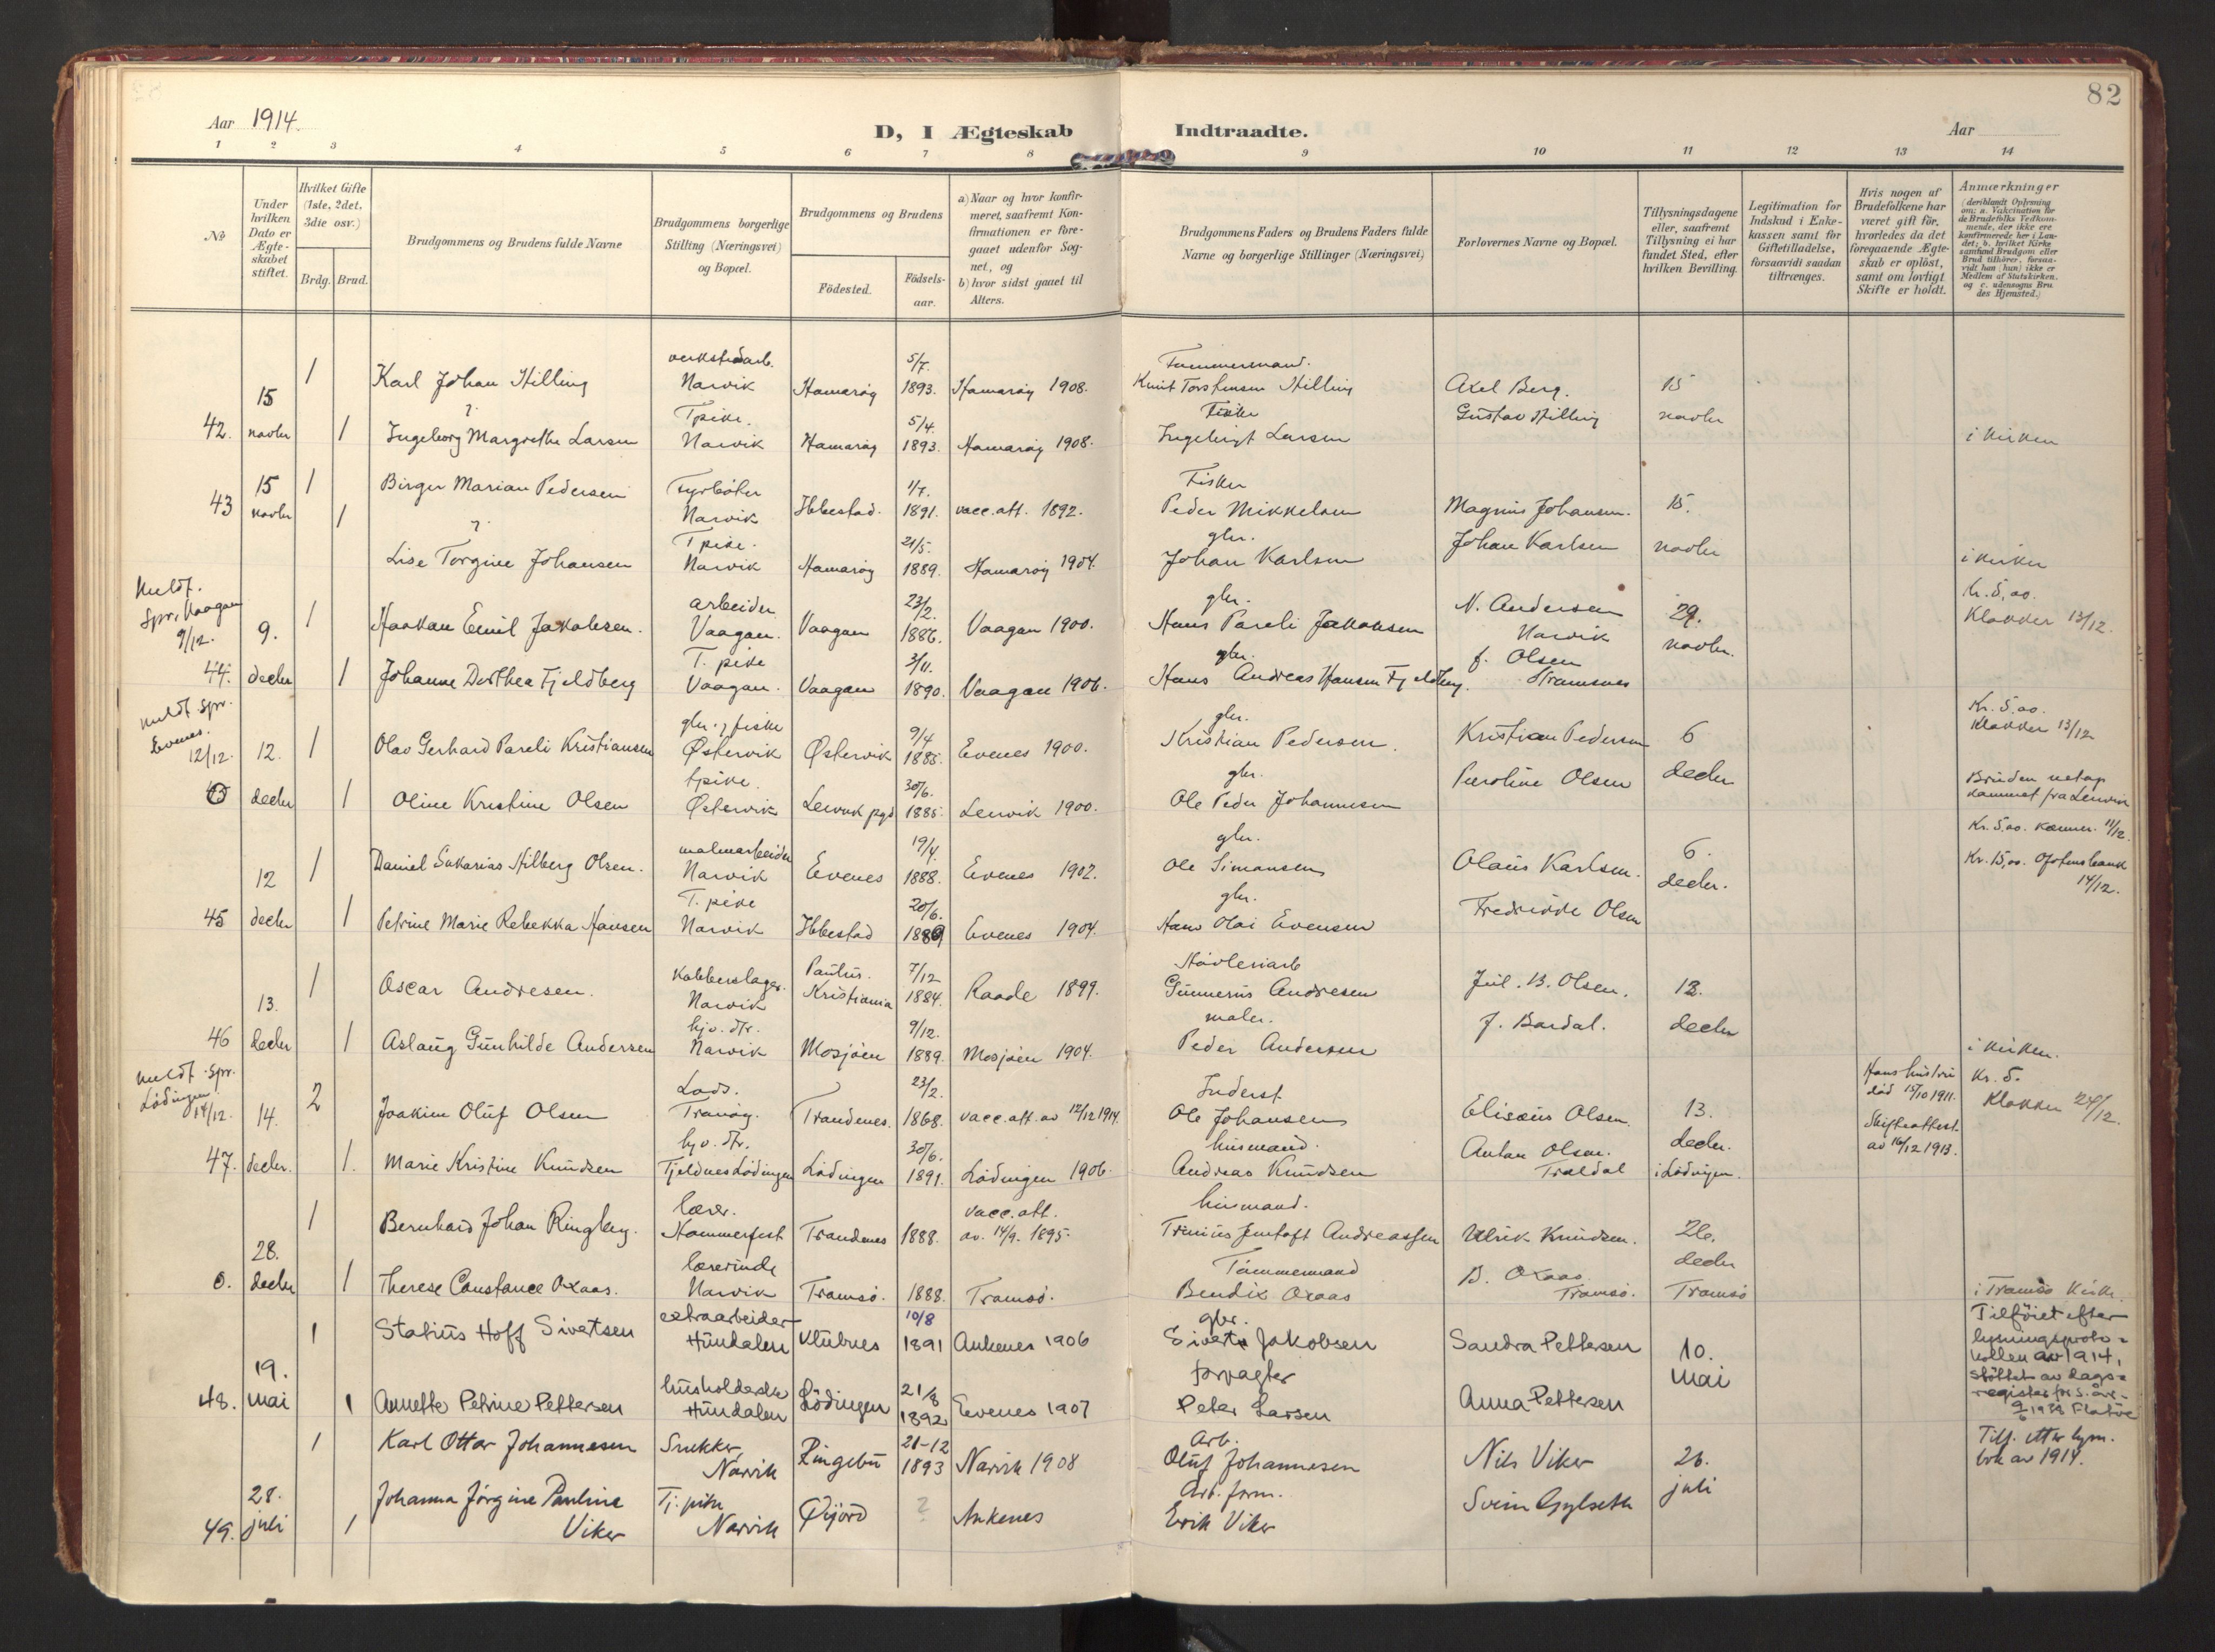 82
Aar 1914.
D, I Ægteskab Indtraadte.
Aar
1 2 3 4 5 6 7 8 9 10 11 12 13 14
No
Under hvilken Dato er Ægteskabet stiftet.
Hvilket Gifte (1ste, 2det, 3die osv.)
Brdg. Brud.
Brudgommens og Brudens fulde Navne
Brudgommens borgerlige Stilling (Næringsvei) og Bopæl.
Brudgommens og Brudens
Födested.
Födsels-aar.
a) Naar og hvor konfirmeret, saafremt Konfirmationen er foregaaet udenfor Sognet, og
b) hvor sidst gaaet til Alters.
Brudgommens Faders og Brudens Faders fulde Navne og borgerlige Stillinger (Næringsvei)
Forlovernes Navne og Bopæl.
Tillysningsdagene eller, saafremt Tillysning ei har fundet Sted, efter hvilken Bevilling.
Legitimation for Indskud i Enkekassen samt for Giftetilladelse, forsaavidt saadan tiltrænges.
Hvis nogen af Brudefolkene har været gift för, hvorledes da det foregaaende Ægteskab er oplöst, samt om lovligt Skifte er holdt.
Anmærkninger
(deriblandt Oplysning om: a. Vakcination for de Brudefolks Vedkommende, der ikke ere konfirmerede her i Landet; b. hvilket Kirkesamfund Brudgom eller Brud tilhörer, forsaavidt han (hun) ikke er Medlem af Statskirken. og c. udensogns Brudes Hjemsted.)
15 1 Karl Johan Stilling verkstedarb. Narvik Hamaröy 5/7. 1893. Hamaröy 1908. Tømmermand. Knut Torstensen Stilling Axel Berg. 15
42. novbr 1 Ingeborg Margrethe Larsen T pike. Narvik Hamaröy 5/4. 1893. Hamaröy 1908. Fisker Ingebrigt Larsen Gustav Stilling novbr i kirken
43 15 novbr 1 Birger Marian Pedersen Fyrböter Narvik Ibbestad. 1/7. 1891. vacc. att. 1892. Fisker Peder Mikkelsen Magnus Johansen. 15.
1 Lise Torgine Johansen T pike. Narvik Hamaröy 21/5. 1889. Hamaröy 1904. gbr. Johan Karlsen Johan Karlsen novbr i kirken
Meldt. Spr. Vaagan 9/12. 9. 1 Haakan Emil Jakobsen. arbeider Vaagan. Vaagan 23/2. 1886. Vaagan 1900. gbr. Hans Pareli Jakobsen N. Andersen Narvik 29. Kr. 5,00. Klokker 13/12.
44. decbr 1 Johanne Dorthea Fjeldberg T. pike Vaagan. Vaagan 3/11. 1890. Vaagan 1906. gbr. Hans Andreas Hansen Fjeldberg. f. Olsen Stramsnes novbr.
meldt spr. Evenes. 12/12. 12. 1 Olav Gerhard Pareli Kristiansen gbr. z fisker Østervik Østervik 9/4 1885. Evenes 1900. gbr. Kristian Pedersen. Kristian Pedersen 6 Kr. 5.00. Klokker 13/12
0 decbr 1 Oline Kristine Olsen tpike. Østervik Lenvik pgd 30/6. 1885. Lenvik 1900. gbr. Ole Peder Johannesen Paroline Olsen decbr Bruden netop kommet fra Lenvik
12 1 Daniel Sakarias Hilberg Olsen. malmarbeider Narvik Evenes 19/4. 1888. Evenes 1902. gbr. Ole Simonsen Olaus Karlsen. 6. Kr. 5,00. Kemner. 11/12. Kr. 15,00. Ofotens bank 14/12.
45 decbr 1 Petrine Marie Rebekka Hansen T. pike Narvik Ibbestad 20/6. 1889 Evenes 1904. gbr. Hans Olai Evensen Fredrikke Olsen decbr.
13. 1 Oscar Andresen. Kobberslager. Narvik Paulus. Kristiania 7/12 1884. Raade 1899. Hövleriarb Gunnerus Andresen Jul. B. Olsen. 13.
46 decbr 1 Aslaug Gunhilde Andersen hjv. dtr. Narvik Mosjöen 9/12. 1889. Mosjöen 1904. maler. Peder Andersen J. Bardal. decbr i kirken.
meldt spr. Lödingen 14/12. 14. 2 Joakim Oluf Olsen Lods. Tranöy. Trandenes. 23/2. 1868. vacc. att. av 12/12 1914. Inderst Ole Johansen Elisæus Olsen. 13. Hans hustru död 15/10 1911. Skifteattest. av 16/12 1913. Kr. 5. Klokker 24/12.
47. decbr. 1. Marie Kristine Knudsen hjv. dtr. Tjeldnes Lödingen Lödingen 30/6. 1891. Lödingen 1906. husmand. Andreas Knudsen Anton Olsen. Traldal decbr. i Lödingen.
28. 1 Bernhard Johan Ringberg. lærer. Hammerfest Trandenes 1888. vacc. att. av. 14/9. 1895. husmand. Trinius Jentoft Andreassen Ulrik Knudsen. 26.
0. decbr 1 Therese Constance Oxaas. lærerinde Narvik Tromsö. 1888. Tromsö. Tömmermand Bendix Oxaas B. Oxaas Tromsö. decbr Tromsö i Tromsö Kirke.
19. 1 Statius Hoff Sivertsen extraarbeider Hundalen Klubnes 10/8 1891 Ankenes 1906 gbr. Sivert Jakobsen Sandra Pettersen 10. Tilföiet efter lysningsprotokollen av 1914, stöttet av dagsregister for s. år. 9/6 1938 Flatöe
48. mai 1 Annette Petrine Pettersen husholderske Hundalen Lödingen 21/8 1892 Evenes 1907 forpagter Peter Larsen Anna Pettersen mai
1 Karl Ottar Johannesen Snekker Narvik Ringebu 21-12 1893 Narvik 1908 Arb. Oluf Johannesen Nils Viker 26. Tilf. etter lysn. bok av 1914.
28.
49. juli 1 Johanna Jörgine Pauline Viker Tj. pike Narvik Öijord ? Ankenes Arb. form. Erik Viker Svein Gylseth juli